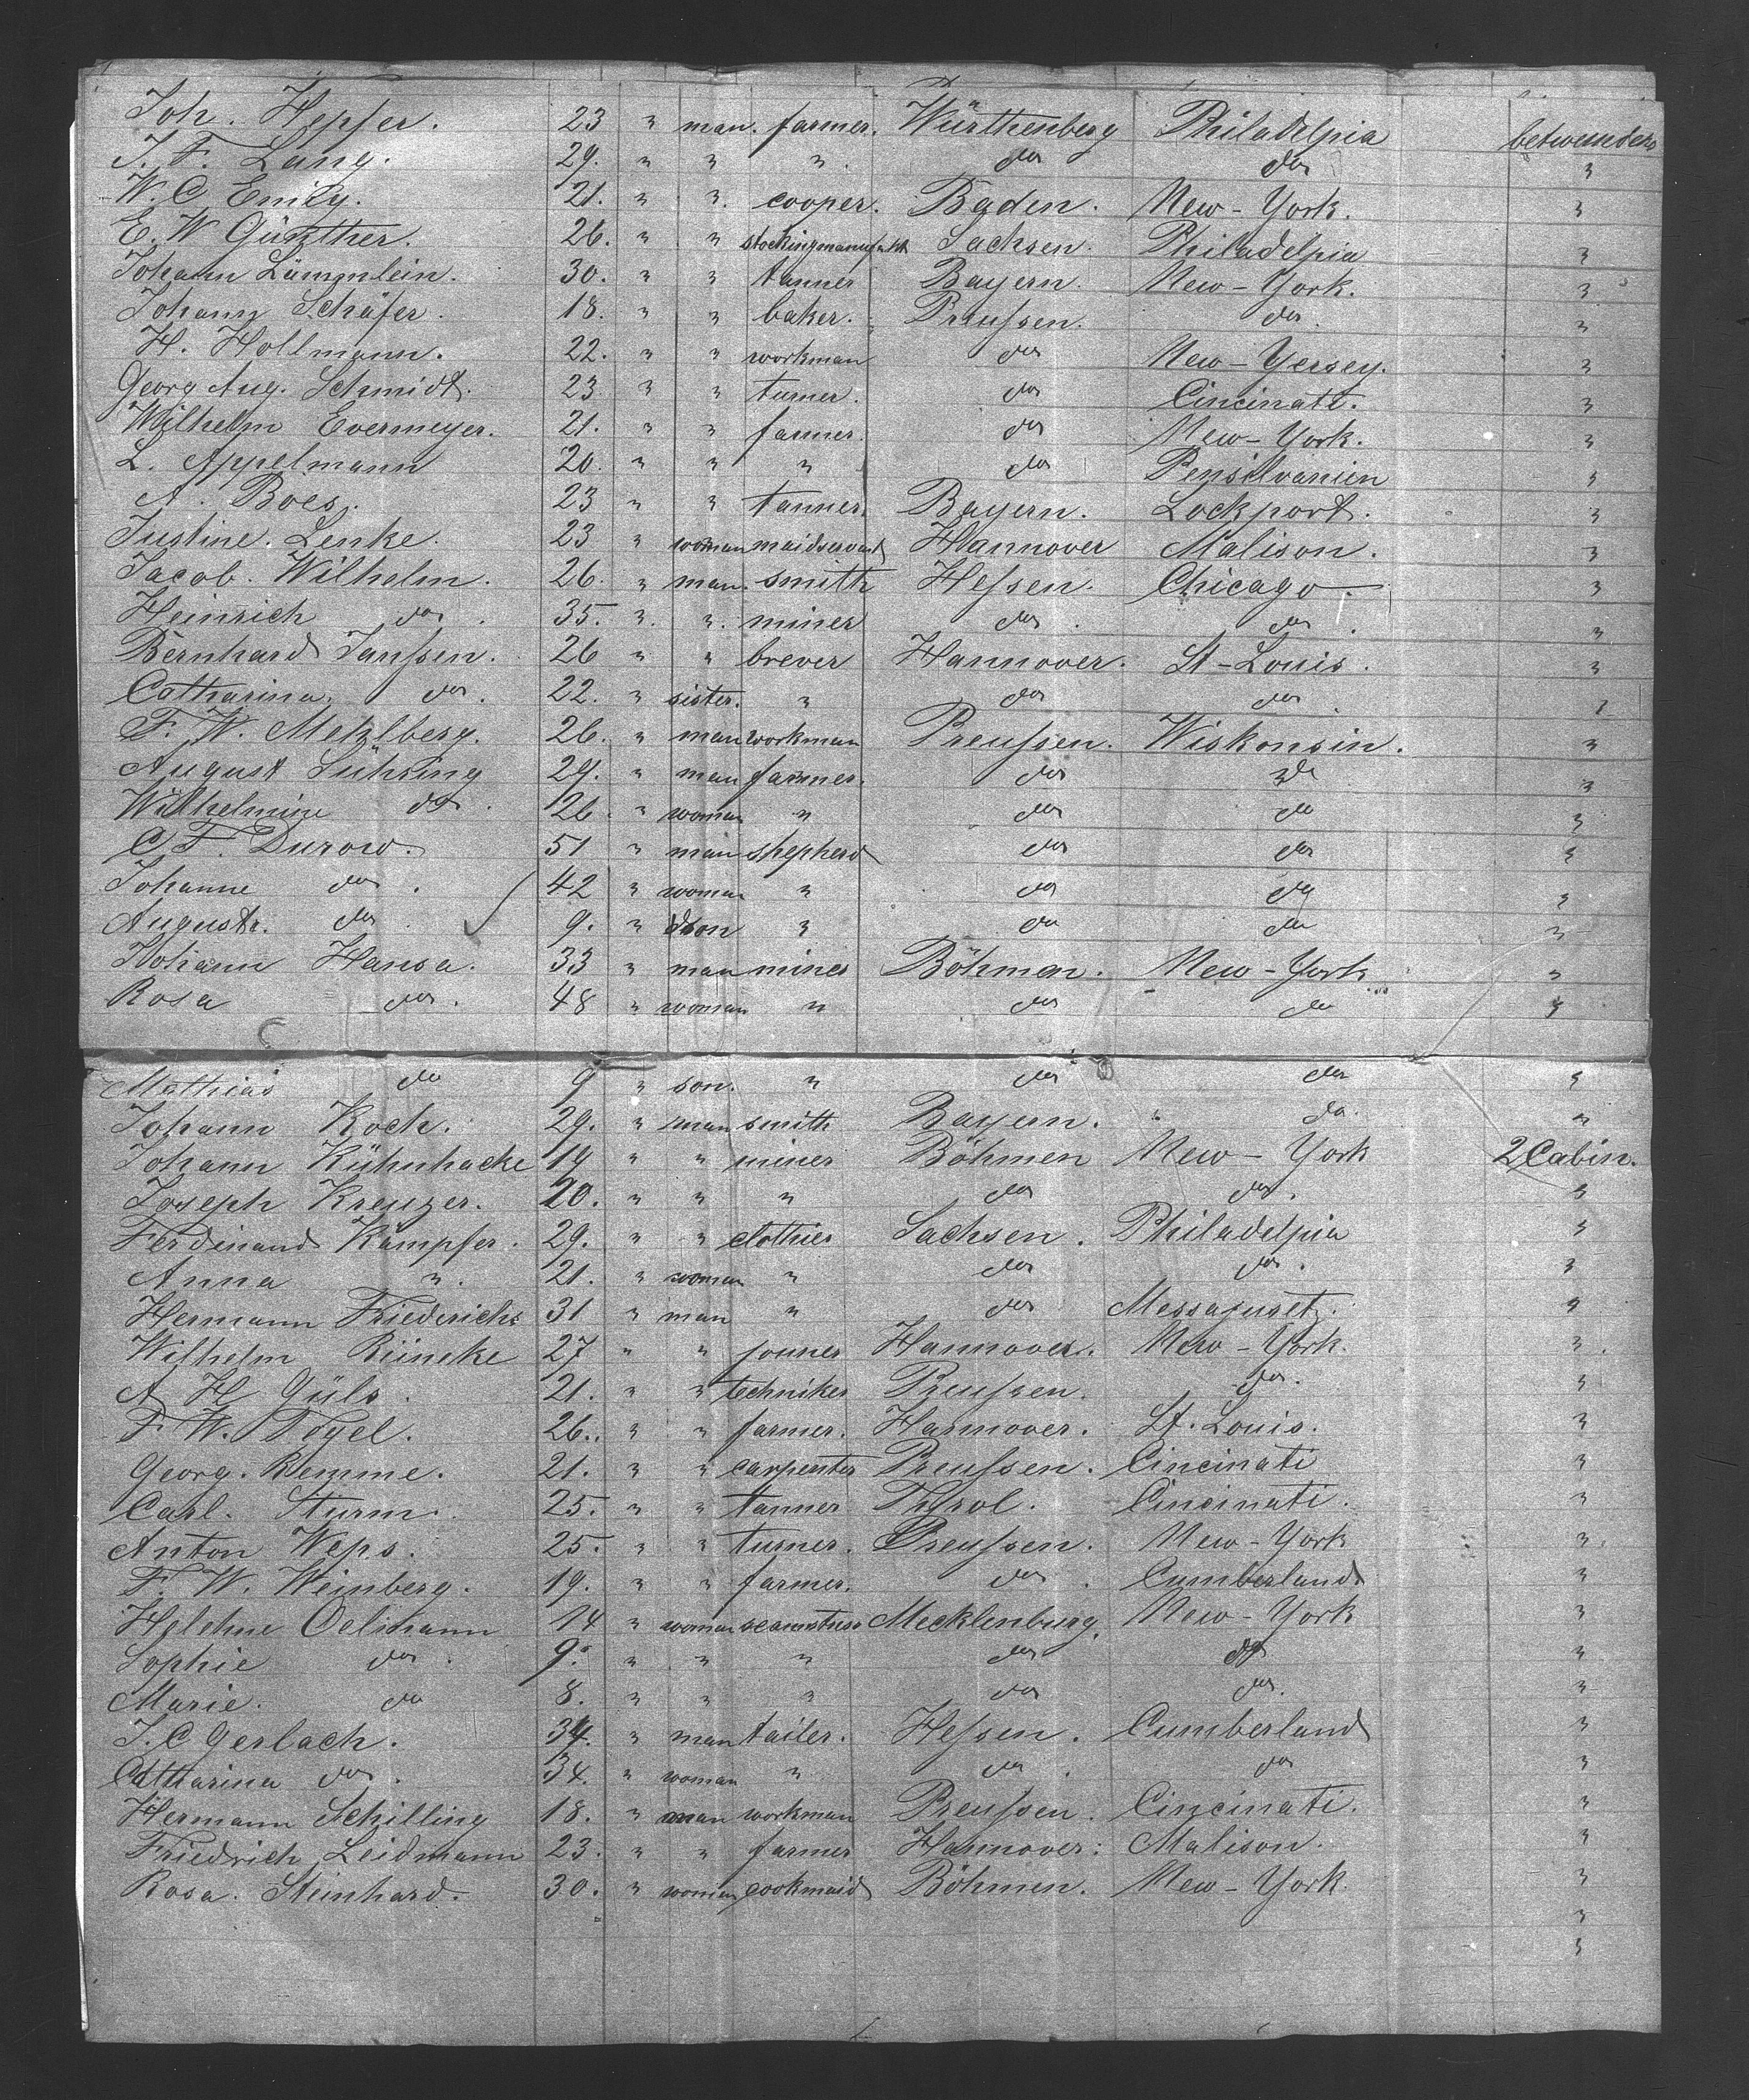 Joh. Hepfer. 23 " man. farmer. Würthenberg Philadelpia betweenders
J. F. Lang. 29. " " " do do "
W. C. Emig. 21. " " cooper. Baden. New-York. "
E. W. Günther. 26. " " Sachsen. Philadelpia "
Johann Lämmlein. 30. " " tanner Bayern. New-York. "
Johann Schäfer. 18. " " baker. Preußen. do. "
H. Hollmann. 22. " " workman do New-Yersey. "
Georg Aug. Schmidt. 23 " " turner. do Cincinati. "
Wilhelm Evermeyer. 21. " " farmer. do New-York. "
L. Appelmann 20. " " " do Pensilvanien "
A. Boes. 23 " " tanner. Bayern. Lockport. "
Justine. Lenke. 23 " woman maidservant Hannover Malison. "
Jacob. Wilhelm. 26. " man. smith Heßen. Chicago. "
Heinrich do. 35. " " miner do. do. "
Bernhard Janßen. 26 " " brever Hannover. St-Louis. "
Catharina do. 22. " sister. " do do. "
F. W. Metzlberg. 26. " man workman Preußen. Wiskonsin. "
August Lühring 29. " man farmer. do do "
Wilhelmine do. 26. " woman " do do "
C. F. Durow. 51 " man shepherd do do "
Johanne do. 42 " woman " do do "
August. do 9. " son " do do "
Johann Hansa. 33 " man miner Böhmen. New-York "
Rosa do. 48 " woman " do do "
Mathias do 9 " son. " do do "
Johann Koch. 29. " man smith Bayern. do. "
Johann Kühnhacke 19 " " miner Böhmen New-York 2 Cabin.
Joseph Kreuzer. 20. " " " do do. "
Ferdinand Kämpfer. 29. " " clothier Sachsen. Philadelpia "
Anna ". 21. " woman " do do. "
Hermann Friederichs 31 " man " do Messajusetz. "
Wilhelm Rüneke 27 " " joiner Hannover. New-York. "
A H Güls. 21. " " techniker Preussen. do. "
F. W. Vogel. 26. " " farmer. Hannover. St. Louis. "
Georg. Remme. 21. " " carpenter Preußen. Cincinati "
Carl. Sturm. 25. " " tanner Thyrol. Cincinati. "
Anton Weps. 25. " " turner. Preußen. New-York "
F. W. Weinberg. 19. " " farmer. do. Cumberland. "
Helehne Oelmann 14 " woman seamstress Mecklenburg. New-York "
Sophie do. 9. " " " do do "
Marie. do 8. " " " do do. "
J. C Gerlach. 34. " man tailer. Heßen. Cumberland "
Catharina do. 34. " woman " do. do "
Hermann Schilling 18. " man workman Preußen. Cincinati. "
Friedrich Leidmann 23. " " farmer Hannover. Malison. "
Rosa. Steinhard. 30. " woman cookmaid Böhmen. New-York. "
"
"